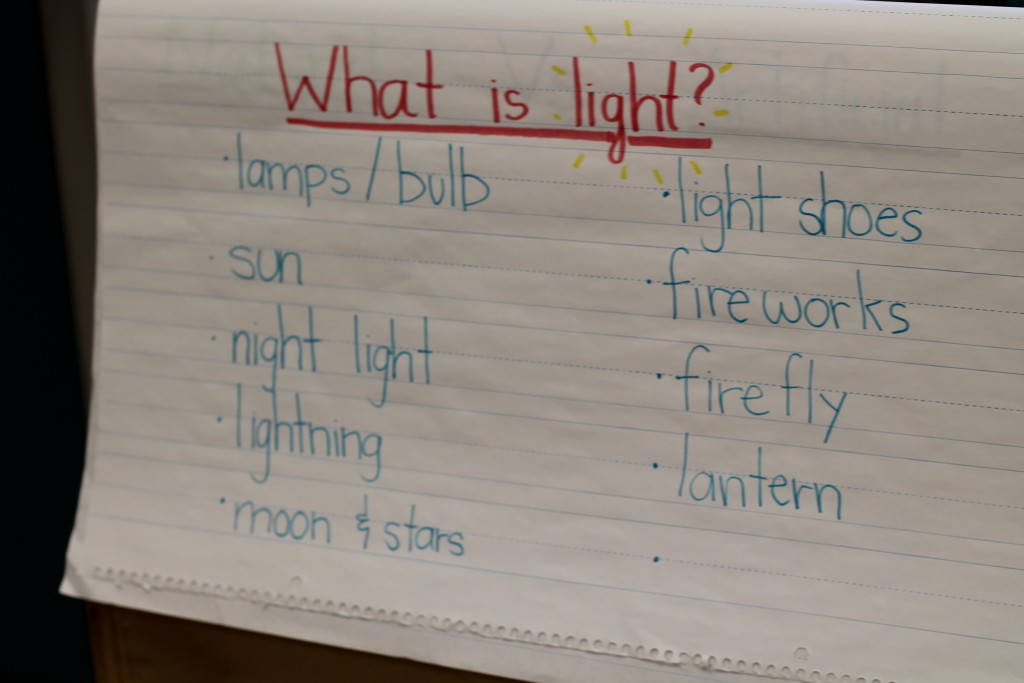 What is light?
·lamps / bulb
·sun
·night light
·lightning
·moon & stars
·light shoes
·fireworks
·firefly
·lantern
·